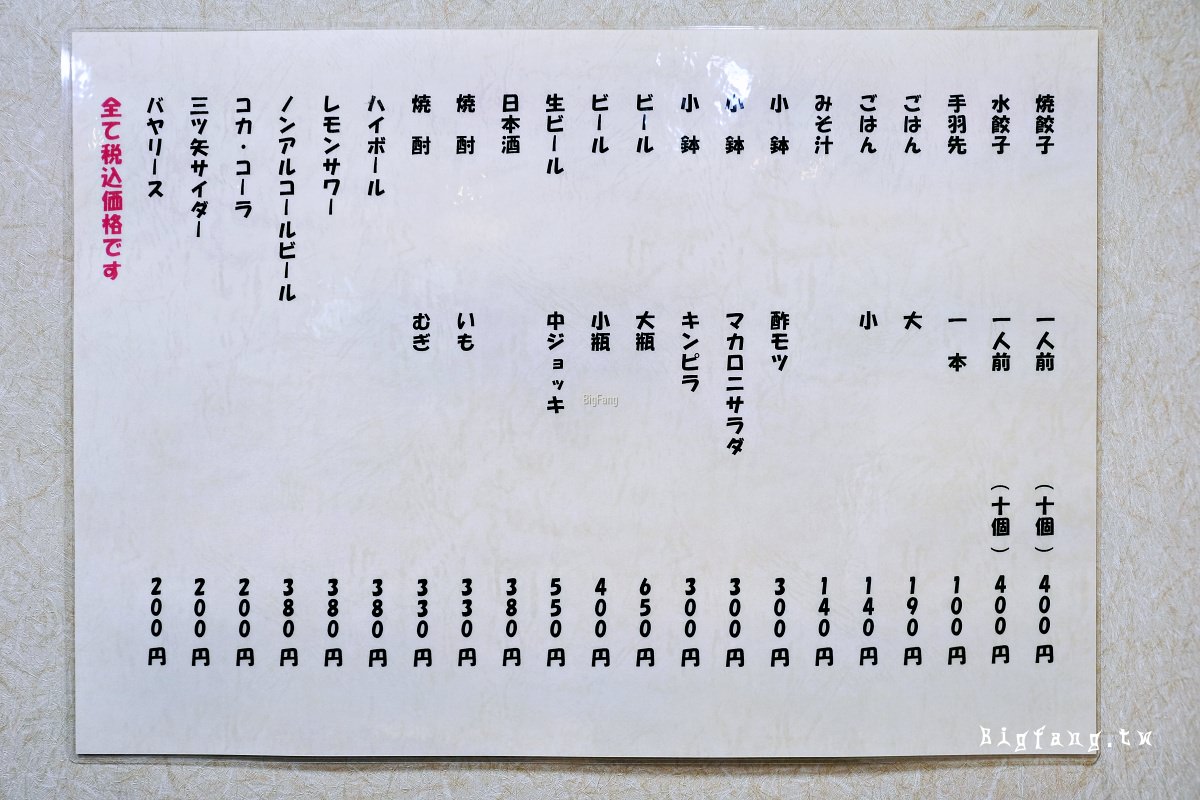 焼餃子 一人前 （十個） 400円
水餃子 一人前 （十個） 400円
手羽先 一本 100円
ごはん 大 190円
ごはん 小 140円
みそ汁 140円
小鉢 酢モツ 300円
小鉢 マカロニサラダ 300円
小鉢 キンピラ 300円
ビール 大瓶 650円
ビール 小瓶 400円
生ビール 中ジョッキ 550円
日本酒 380円
焼酎 いも 330円
焼酎 むぎ 330円
ハイボール 380円
レモンサワー 380円
ノンアルコールビール 380円
コカ・コーラ 200円
三ツ矢サイダー 200円
バヤリース 200円
全て税込価格です
BigFang
Bigfang.tw